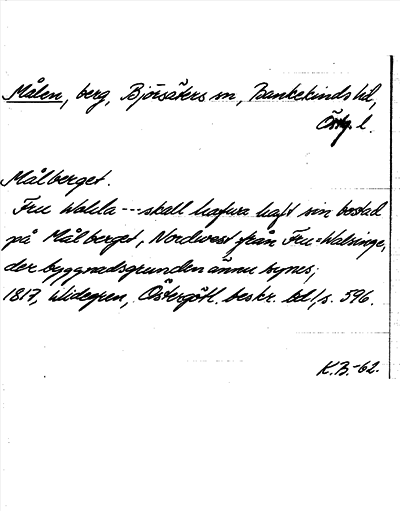 Målen, berg, Björsäters sn, Bankekinds hd,
Östg. l.
Målberget.
Fru Walla --- skall hafwa haft sin bostad
på Målberget, Nordwest från Fru=Walsinge,
der byggnadsgrunden ännu synes;
1817, Widegren, Östergötl. beskr. bd 1, s. 596.
K.B.-62.